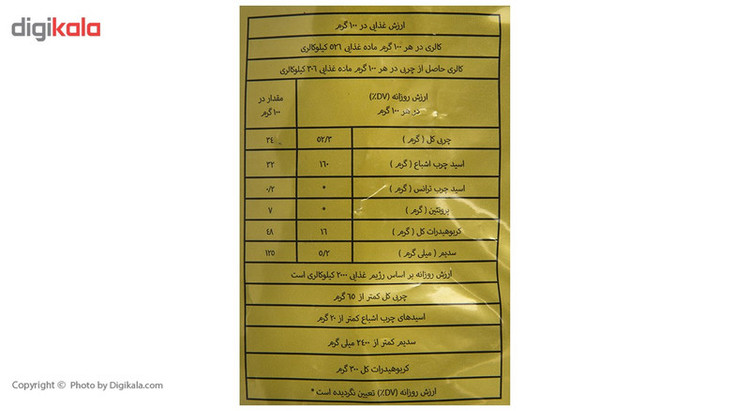 digikala
ارزش غذایی در ۱۰۰ گرم
کالری در هر ۱۰۰ گرم ماده غذایی ٥٢٦ کیلوکالری
کالری حاصل از چربی در هر ۱۰۰ گرم ماده غذایی ۳۰٦ کیلوکالری
ارزش روزانه (DV٪) در هر ۱۰۰ گرم مقدار در ۱۰۰ گرم
چربی کل ( گرم ) ٥٢/٣ ٣٤
اسید چرب اشباع ( گرم ) ١٦٠ ٣٢
اسید چرب ترانس ( گرم ) * ٠/٢
پروتئین ( گرم ) * ٧
کربوهیدرات کل ( گرم ) ١٦ ٤٨
سدیم ( میلی گرم ) ٥/٢ ١٢٥
ارزش روزانه بر اساس رژیم غذایی ٢٠٠٠ کیلوکالری است
چربی کل کمتر از ٦٥ گرم
اسیدهای چرب اشباع کمتر از ٢٠ گرم
سدیم کمتر از ٢٤٠٠ میلی گرم
کربوهیدرات کل ٣٠٠ گرم
ارزش روزانه (DV٪) تعیین نگردیده است *
Copyright © Photo by Digikala.com